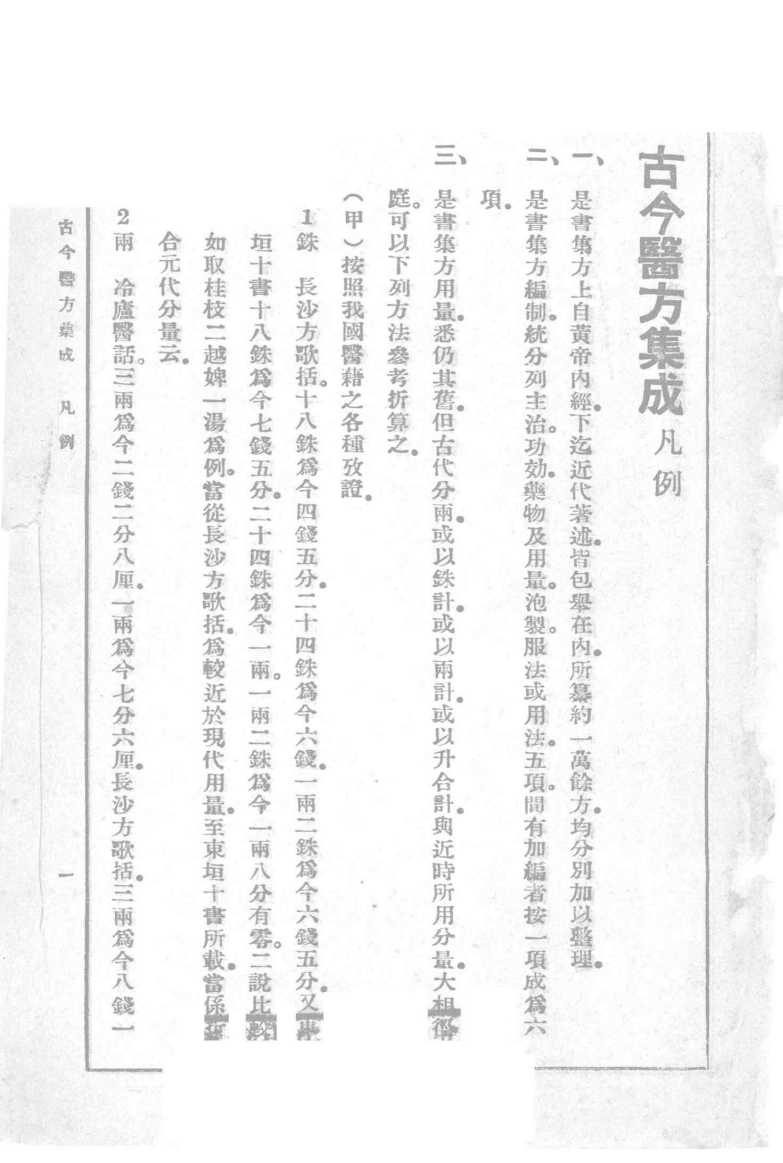 古今醫方集成 凡例
一、是書集方上自黃帝內經。下迄近代著述。皆包舉在內。所纂約一萬餘方。均分別加以整理。
二、是書集方編制。統分列主治。功効。藥物及用量。泡製。服法或用法。五項。間有加編者按一項成爲六
項。
三、是書集方用量。悉仍其舊。但古代分兩。或以銖計。或以兩計。或以升合計。與近時所用分量。大相徑
庭。可以下列方法參考折算之。
（甲）按照我國醫藉之各種攷證。
1銖 長沙方歌括。十八銖爲今四錢五分。二十四銖爲今六錢。一兩二銖爲今六錢五分。又東
垣十書十八銖爲今七錢五分。二十四銖爲今一兩。一兩二銖爲今一兩八分有零。二說比較
如取桂枝二越婢一湯爲例。當從長沙方歌括。爲較近於現代用量。至東垣十書所載。當係
合元代分量云。
2兩 冷廬醫話。三兩爲今二錢二分八厘。一兩爲今七分六厘。長沙方歌括。三兩爲今八錢一
古今醫方集成 凡例 一